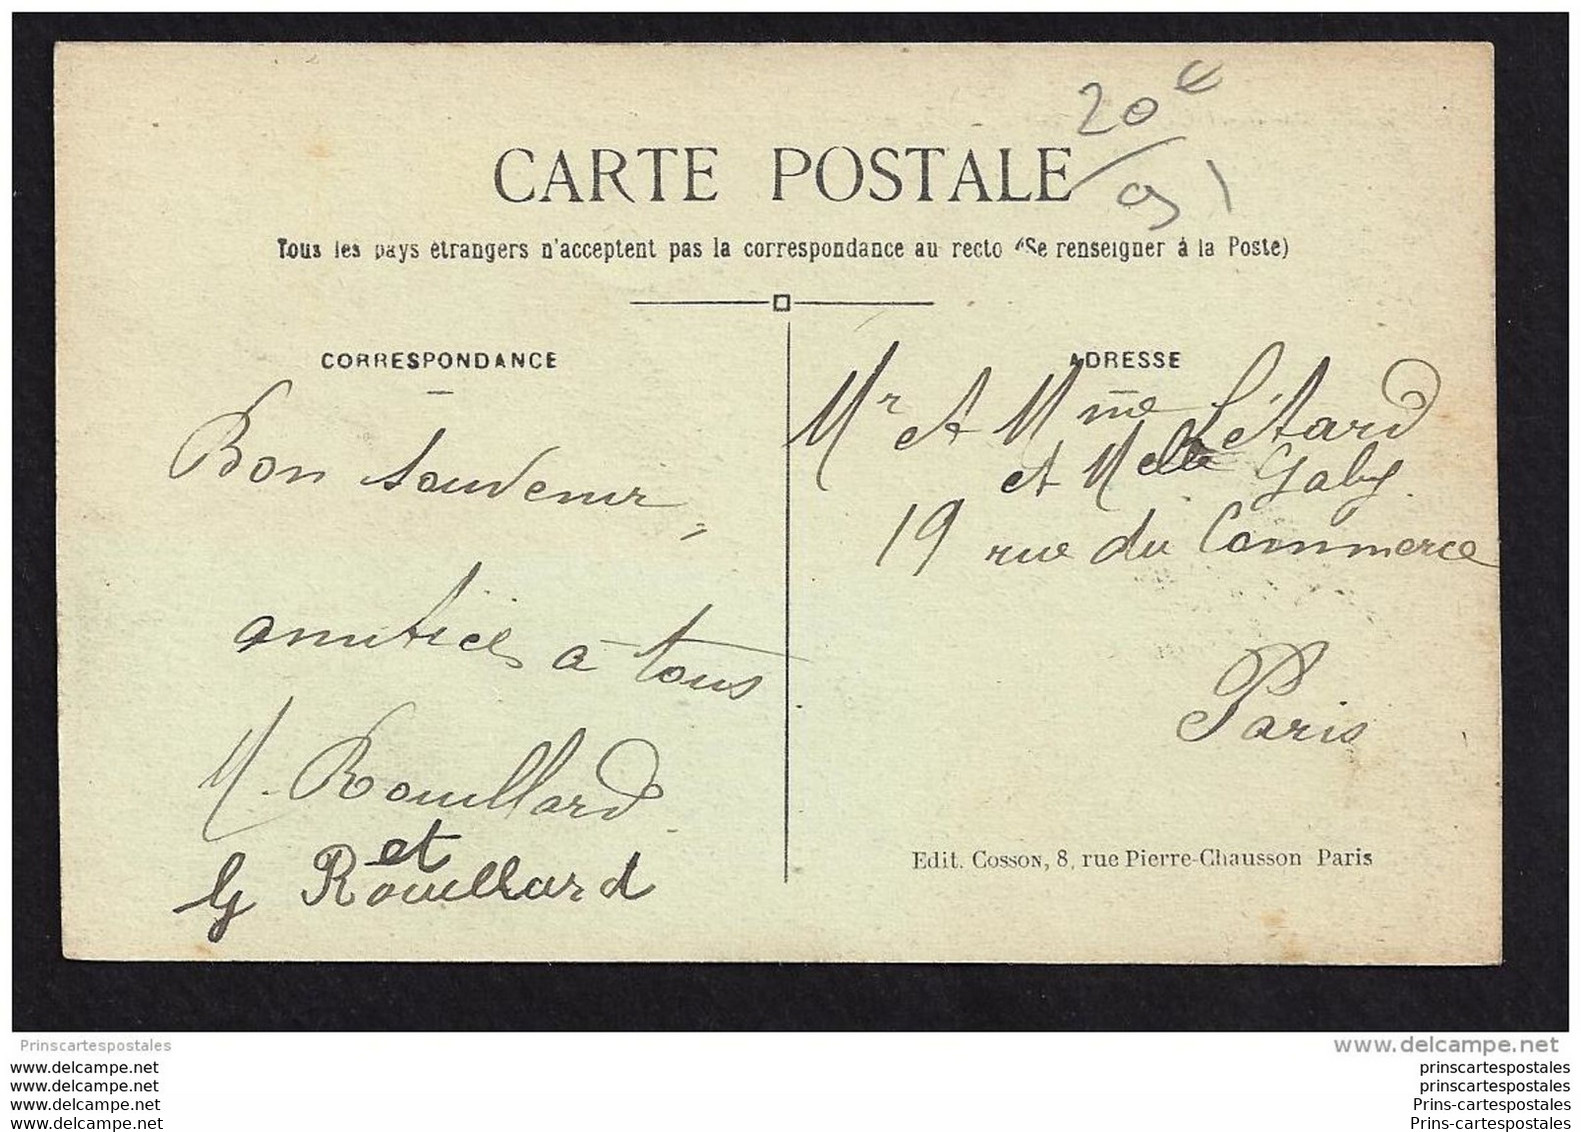 20€
91
CARTE POSTALE
Tous les pays étrangers n'acceptent pas la correspondance au recto (Se renseigner à la Poste)
CORRESPONDANCE
Bon souvenir,
amitiés à tous
M. Rouillard
et
G Rouillard
ADRESSE
Mr et Mme Létard
et Melle Gaby.
19 rue du Commerce
Paris
Edit. COSSON, 8, rue Pierre-Chausson Paris
Prinscartespostales
www.delcampe.net
www.delcampe.com
www.delcampe.com
www.delcampe.com
www.delcampe.com
prinscartespostales
prinscartespostales
Prins-cartespostales
Prins-cartespostales